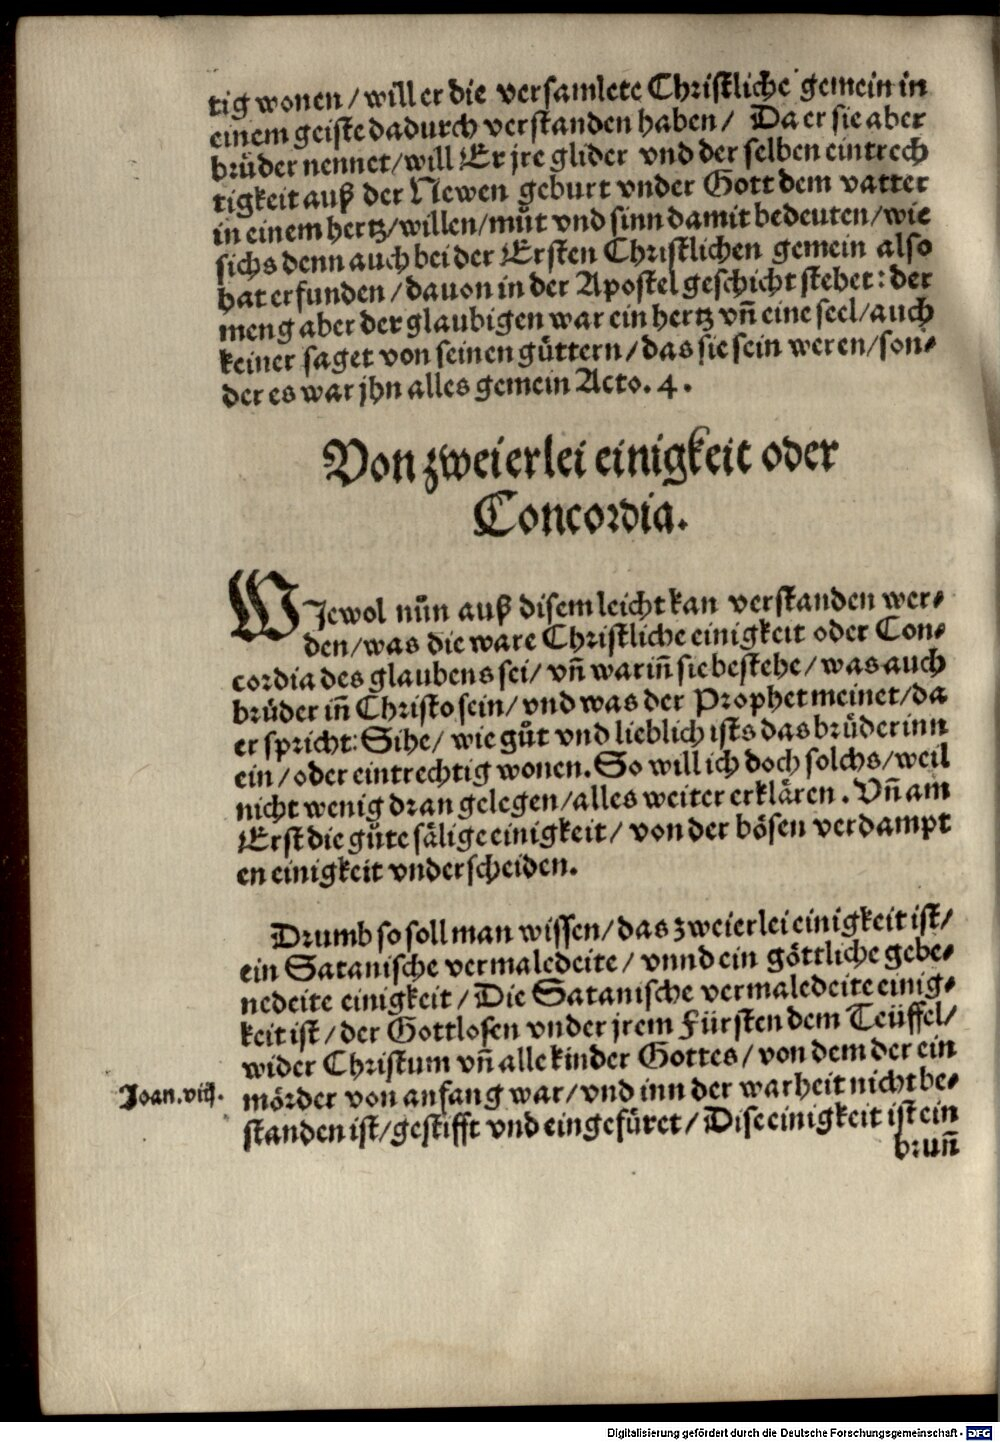 tig wonen / will er die versamlete Christliche gemein in
einem geiste dadurch verstanden haben / Da er sie aber
brüder nennet / will Er jre glider vnd der selben eintrech
tigkeit auß der Newen geburt vnder Gott dem vatter
in einem hertz / willen / můt vnd sinn damit bedeuten / wie
sichs denn auch bei der Ersten Christlichen gemein also
hat erfunden / dauon in der Apostel geschicht stehet: der
meng aber der glaubigen war ein hertz vn̄ eine seel / auch
keiner saget von seinen güttern / das sie sein weren / son⸗
der es war jhn alles gemein Acto. 4.
Von zweierlei einigkeit oder
Concordia.
WJewol nůn auß disem leicht kan verstanden wer⸗
den / was die ware Christliche einigkeit oder Con⸗
cordia des glaubens sei / vn̄ warin̄ sie bestehe / was auch
brüder in̄ Christo sein / vnd was der Prophet meinet / da
er spricht: Sihe / wie gůt vnd lieblich ists das brüder inn
ein / oder eintrechtig wonen. So will ich doch solchs / weil
nicht wenig dran gelegen / alles weiter erklären. Vn̄ am
Erst die gůte sälige einigkeit / von der bösen verdampt
en einigkeit vnderscheiden.
Drumb so soll man wissen / das zweierlei einigkeit ist /
ein Satanische vermaledeite / vnnd ein göttliche gebe⸗
nedeite einigkeit / Die Satanische vermaledeite einig⸗
keit ist / der Gottlosen vnder jrem Fürsten dem Teüffel /
wider Christum vn̄ alle kinder Gottes / von dem der ein
Joan. viij. mörder von anfang war / vnd inn der warheit nicht be⸗
standen ist / gestifft vnd eingefüret / Dise einigkeit ist ein
brun̄
Digitalisierung gefördert durch die Deutsche Forschungsgemeinschaft - DFG